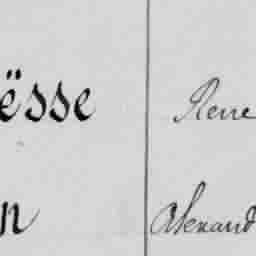 ësse Rene
n Alexand